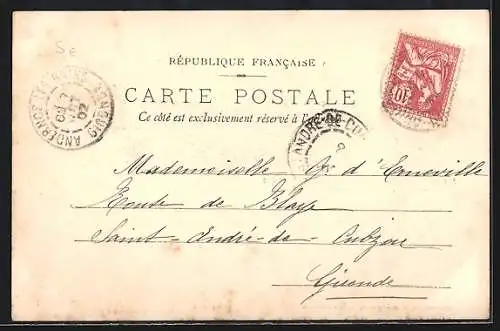 5e
RÉPUBLIQUE FRANÇAISE
CARTE POSTALE
Ce côté est exclusivement réservé à l'
ANDRÉ-DE-CU
ANDERNOS
02
10
Mademoiselle G. d'Erneville
Route de Blaye
Saint-André-de-Cubzac
Gironde